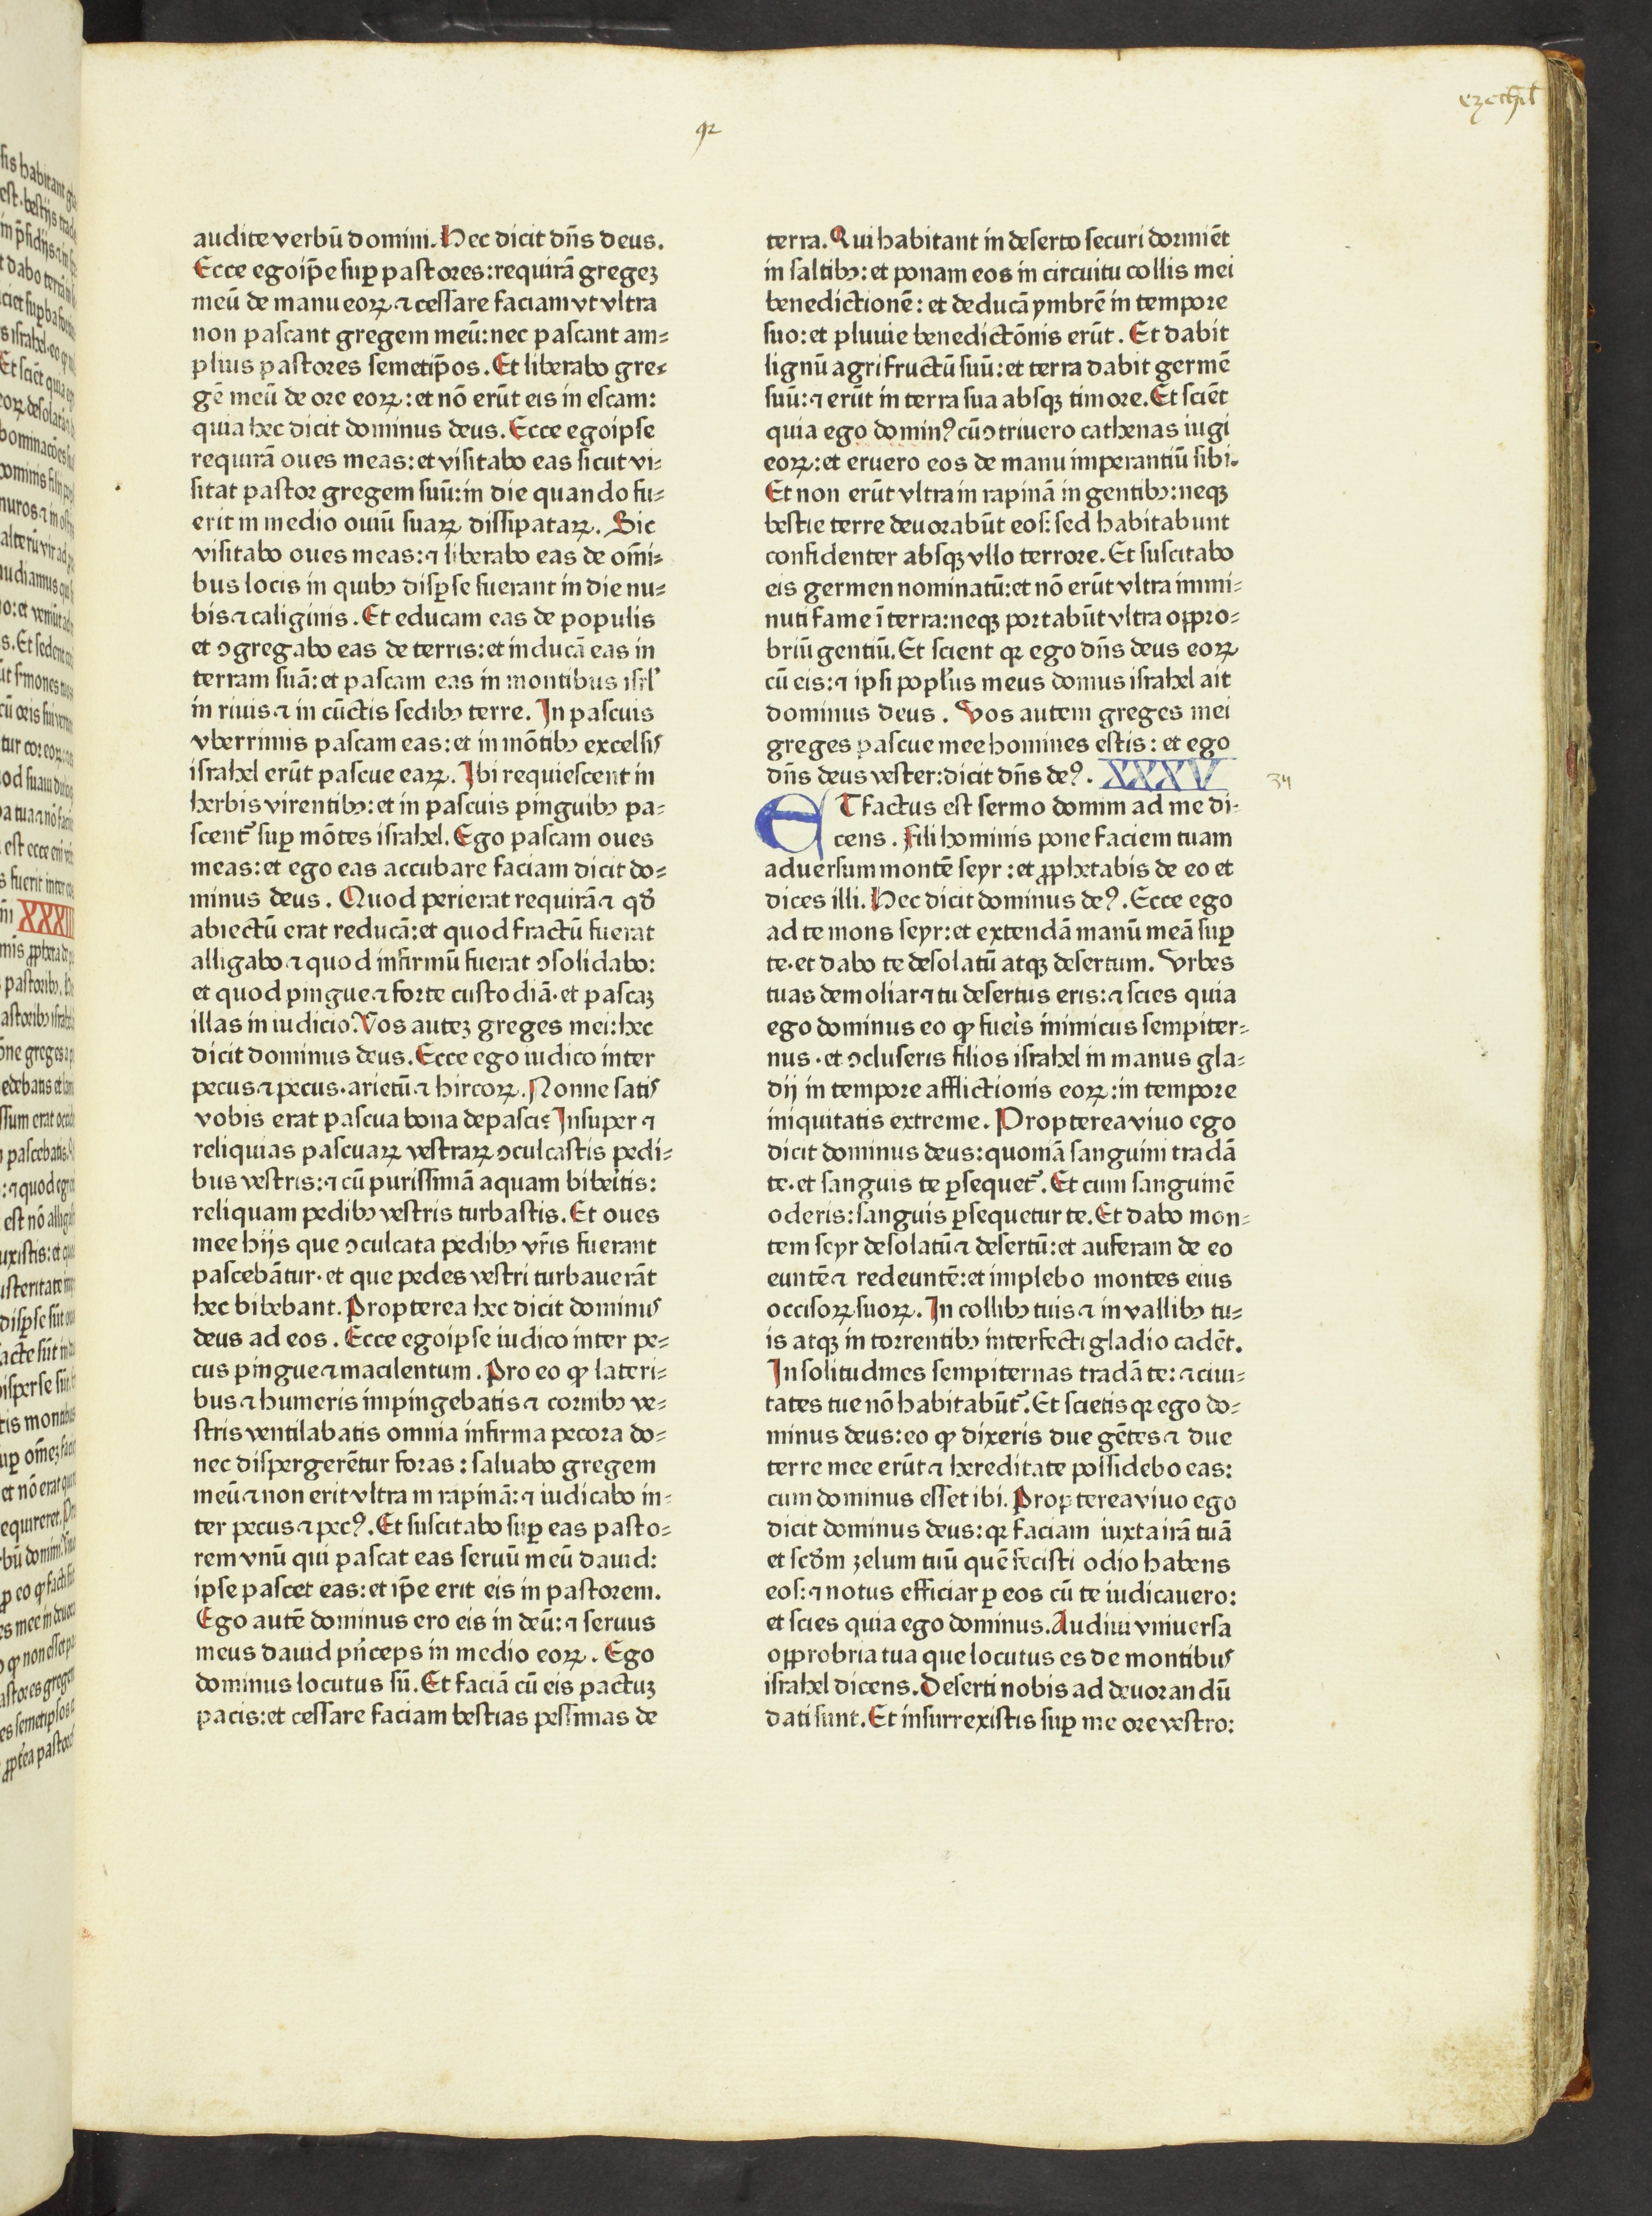 ezechil
audite verbū domini. Hec dicit dn̄s deus.
Ecce ego ip̄e suꝑ pastores: requirā gregeꝫ
meū de manu eoꝝ ⁊ cessare faciam vt vltra
non pascant gregem meū: nec pascant am⸗
plius pastores semetip̄os. Et liberabo gre⸗
gē meū de ore eoꝝ: et nō erūt eis in escam:
quia hec dicit dominus deus. Ecce ego ipse
requirā oues meas: et visitabo eas sicut vi⸗
sitat pastor gregem suū: in die quando fu⸗
erit in medio ouiū suaꝝ dissipataꝝ. Sic
visitabo oues meas: ⁊ liberabo eas de om̄i⸗
bus locis in quibꝰ disꝑse fuerant in die nu⸗
bis ⁊ caliginis. Et educam eas de populis
et ꝯgregabo eas de terris: et inducā eas in
terram suā: et pascam eas in montibus isrl'
in riuis ⁊ in cūctis sedibꝰ terre. In pascuis
vberrimis pascam eas: et in mōtibꝰ excelsis
israhel erūt pascue eaꝝ. Ibi requiescent in
herbis virentibꝰ: et in pascuis pinguibꝰ pa⸗
scent᷑ suꝑ mōtes israhel. Ego pascam oues
meas: et ego eas accubare faciam dicit do⸗
minus deus. Quod perierat requirā ⁊ qd̄
abiectū erat reducā: et quod fractū fuerat
alligabo ⁊ quod infirmū fuerat ꝯsolidabo:
et quod pingue ⁊ forte custodiā. et pascaꝫ
illas in iudicio. Vos auteꝫ greges mei: hec
dicit dominus deus. Ecce ego iudico inter
pecus ⁊ pecus. arietū ⁊ hircoꝝ. Nonne satis
vobis erat pascua bona depasci? Insuper ⁊
reliquias pascuaꝝ vestraꝝ ꝯculcastis pedi⸗
bus vestris: ⁊ cū purissimā aquam bibeitis:
reliquam pedibꝰ vestris turbastis. Et oues
mee hijs que ꝯculcata pedibꝰ vr̄is fuerant
pascebātur. et que pedes vestri turbauerāt
hec bibebant. Propterea hec dicit dominus
deus ad eos. Ecce ego ipse iudico inter pe⸗
cus pingue ⁊ macilentum. Pro eo ꝙ lateri⸗
bus ⁊ humeris impingebatis ⁊ cornibꝰ ve⸗
stris ventilabatis omnia infirma pecora do⸗
nec dispergerētur foras: saluabo gregem
meū ⁊ non erit vltra in rapinā: ⁊ iudicabo in⸗
ter pecus ⁊ pecꝰ. Et suscitabo suꝑ eas pasto⸗
rem vnū qui pascat eas seruū meū dauid:
ipse pascet eas: et ip̄e erit eis in pastorem.
Ego autē dominus ero eis in deū: ⁊ seruus
meus dauid pn̄ceps in medio eoꝝ. Ego
dominus locutus sū. Et faciā cū eis pactuꝫ
pacis: et cessare faciam bestias pessimas de
terra. Qui habitant in deserto securi dormiēt
in saltibꝰ: et ponam eos in circuitu collis mei
benedictionē: et deducā ymbrē in tempore
suo: et pluuie benedictōnis erūt. Et dabit
lignū agri fructū suū: et terra dabit germē
suū: ⁊ erūt in terra sua absqꝫ timore. Et sciēt
quia ego dominꝰ cū ꝯtriuero cathenas iugi
eoꝝ: et eruero eos de manu imperantiū sibi.
Et non erūt vltra in rapinā in gentibꝰ: neqꝫ
bestie terre deuorabūt eos: sed habitabunt
confidenter absqꝫ vllo terrore. Et suscitabo
eis germen nominatū: et nō erūt vltra immi⸗
nuti fame ī terra: neqꝫ portabūt vltra oppro⸗
briū gentiū. Et scient qꝛ ego dn̄s deus eoꝝ
cū eis: ⁊ ipsi popl'us meus domus israhel ait
dominus deus. Vos autem greges mei
greges pascue mee homines estis: et ego
dn̄s deus vester: dicit dn̄s deꝰ. XXXV
34
ET factus est sermo domini ad me di⸗
cens. Fili hominis pone faciem tuam
aduersum montē seyr: et ꝓphetabis de eo et
dices illi. Hec dicit dominus deꝰ. Ecce ego
ad te mons seyr: et extendā manū meā suꝑ
te. et dabo te desolatū atqꝫ desertum. Vrbes
tuas demoliar ⁊ tu desertus eris: ⁊ scies quia
ego dominus eo ꝙ fueis inimicus sempiter⸗
nus. et ꝯcluseris filios israhel in manus gla⸗
dij in tempore afflictionis eoꝝ: in tempore
iniquitatis extreme. Propterea viuo ego
dicit dominus deus: quoniā sanguini tradā
te. et sanguis te ꝑsequet᷑. Et cum sanguinē
oderis: sanguis ꝑsequetur te. Et dabo mon⸗
tem seyr desolatū ⁊ desertū: et auferam de eo
euntē ⁊ redeuntē: et implebo montes eius
occisoꝝ suoꝝ. In collibꝰ tuis ⁊ in vallibꝰ tu⸗
is atqꝫ in torrentibꝰ interfecti gladio cadēt.
In solitudines sempiternas tradā te: ⁊ ciui⸗
tates tue nō habitabūt᷑. Et scietis qꝛ ego do⸗
minus deus: eo ꝙ dixeris due gētes ⁊ due
terre mee erūt ⁊ hereditate possidebo eas:
cum dominus esset ibi. Propterea viuo ego
dicit dominus deus: qꝛ faciam iuxta irā tuā
et scd̄m zelum tuū quē fecisti odio habens
eos: ⁊ notus efficiar ꝑ eos cū te iudicauero:
et scies quia ego dominus. Audiui vniuersa
opprobria tua que locutus es de montibus
israhel dicens. Deserti nobis ad deuorandū
dati sunt. Et insurrexistis suꝑ me ore vestro: